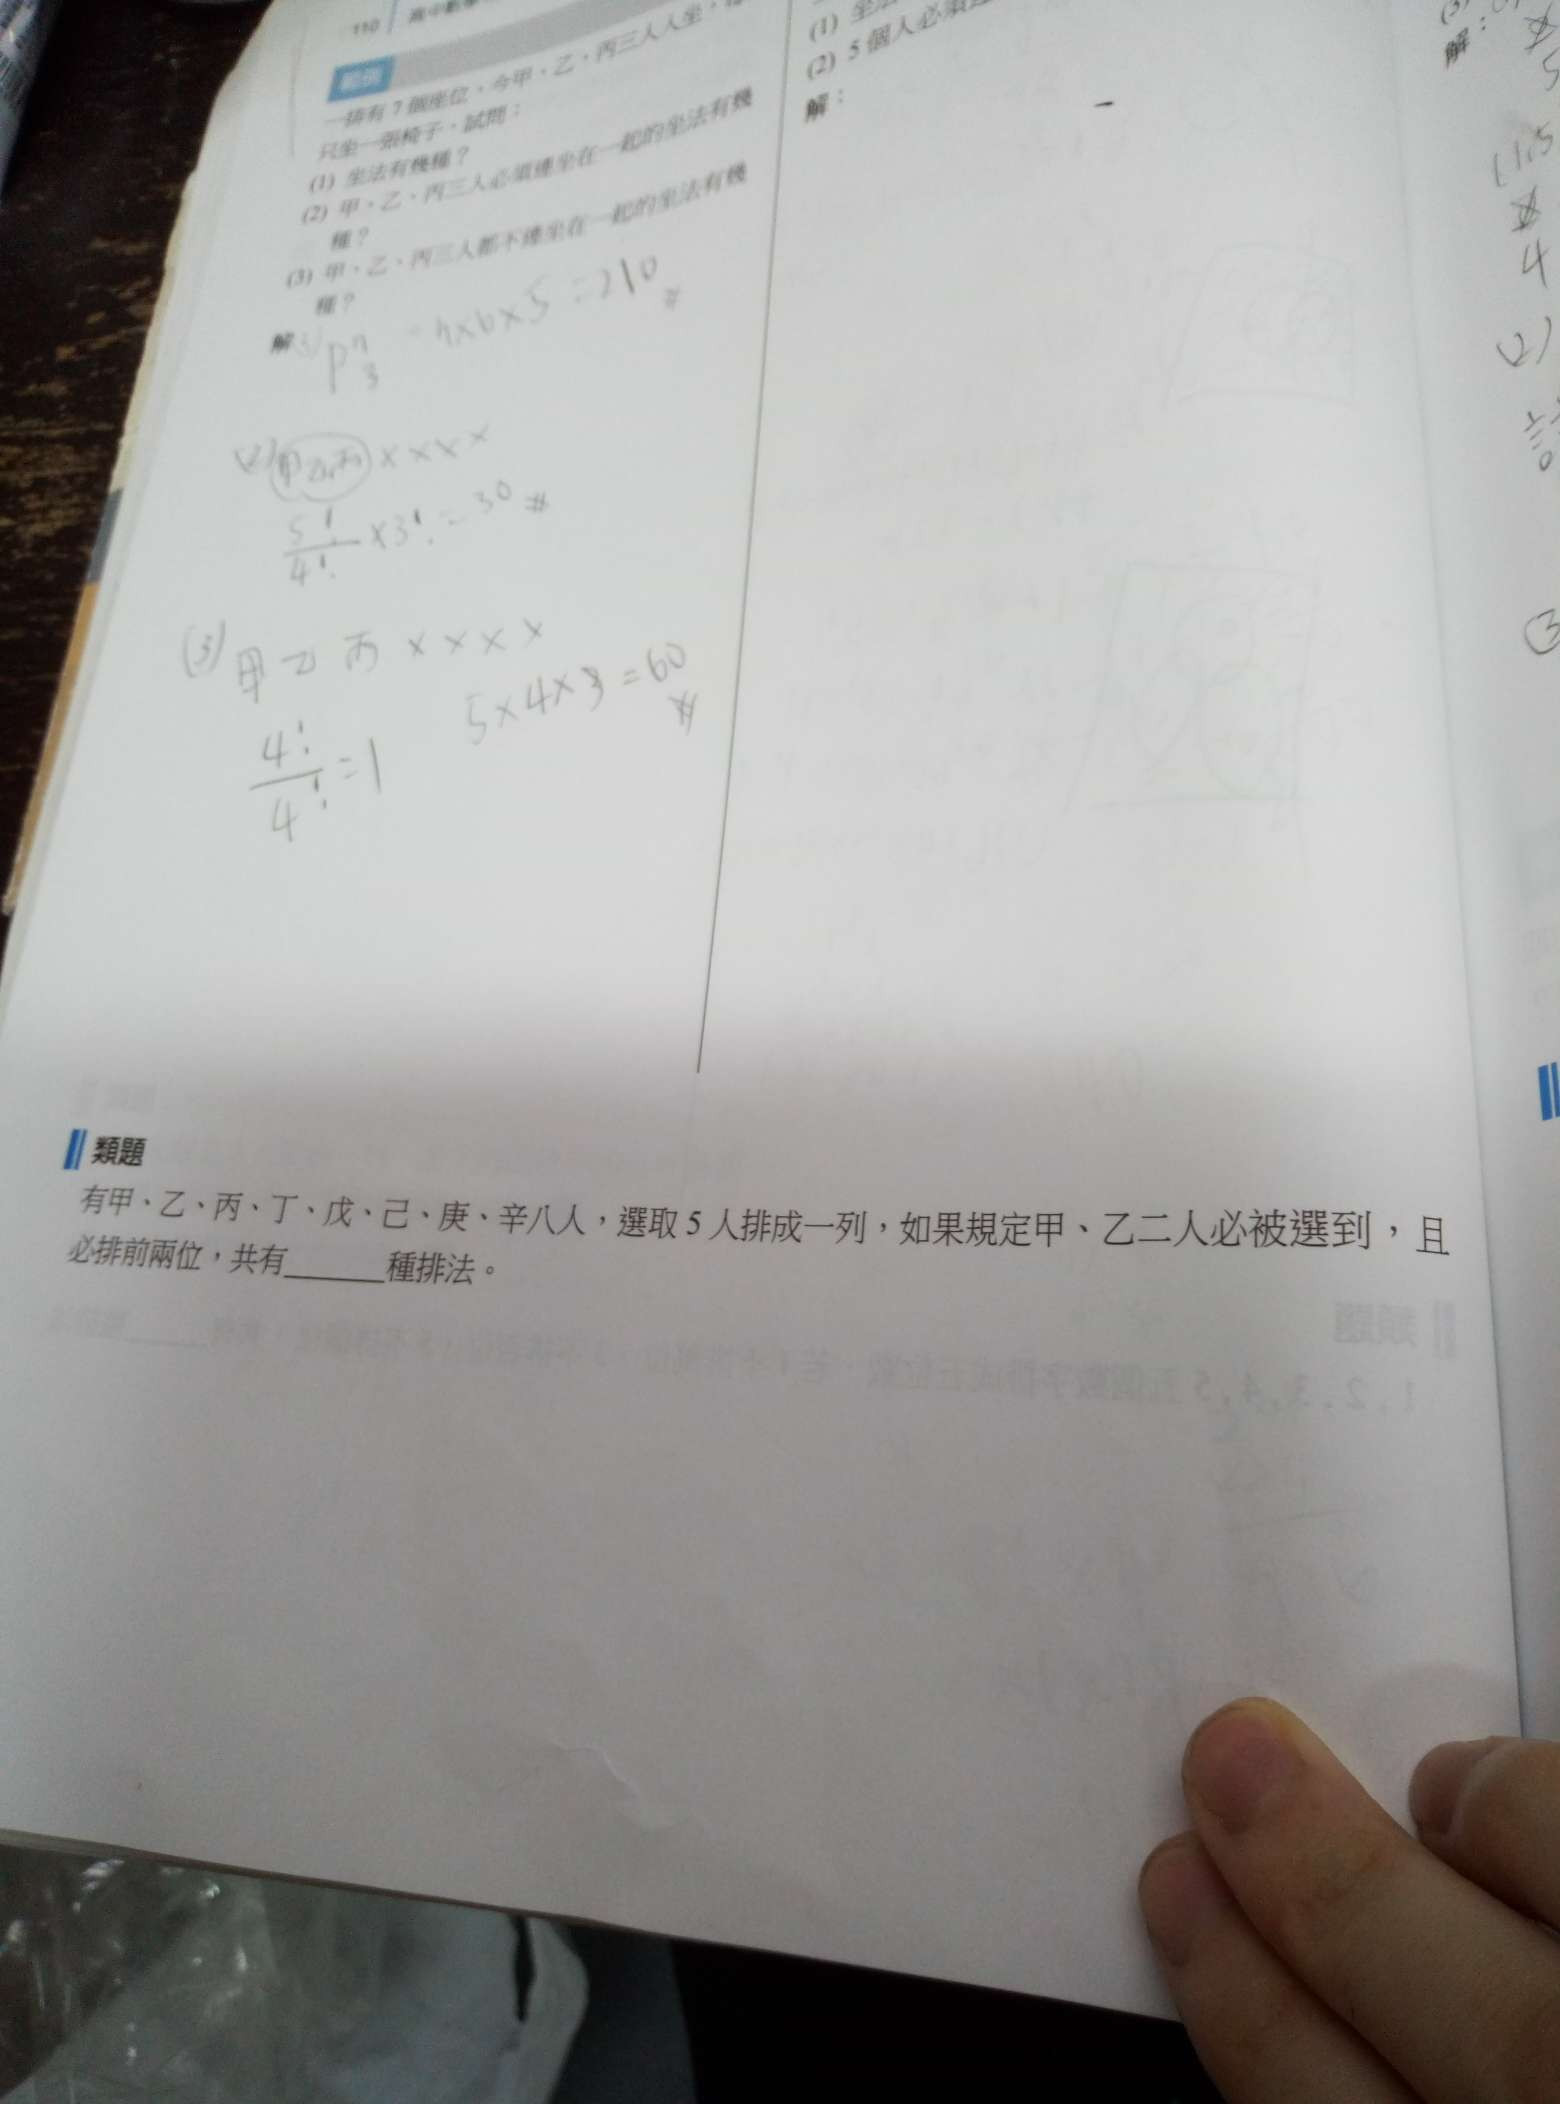 110
範例
一排有 7 個座位，今甲、乙、丙三人入坐，
只坐一張椅子，試問：
(1) 坐法有幾種？
(2) 甲、乙、丙三人必須連坐在一起的坐法有幾
種？
(3) 甲、乙、丙三人都不連坐在一起的坐法有幾
種？
解
P⁷₃ = 7×6×5 = 210 #
(2) 甲乙丙 × × × ×
5!/4! ×3! = 30 #
(3) 甲 乙 丙 × × × ×
4!/4! = 1 5×4×3 = 60 #
(1) 坐
(2) 5 個人必須
解：
類題
有甲、乙、丙、丁、戊、己、庚、辛八人，選取 5 人排成一列，如果規定甲、乙二人必被選到，且
必排前兩位，共有______種排法。
(3)
解：
5
4
(2)
(3)